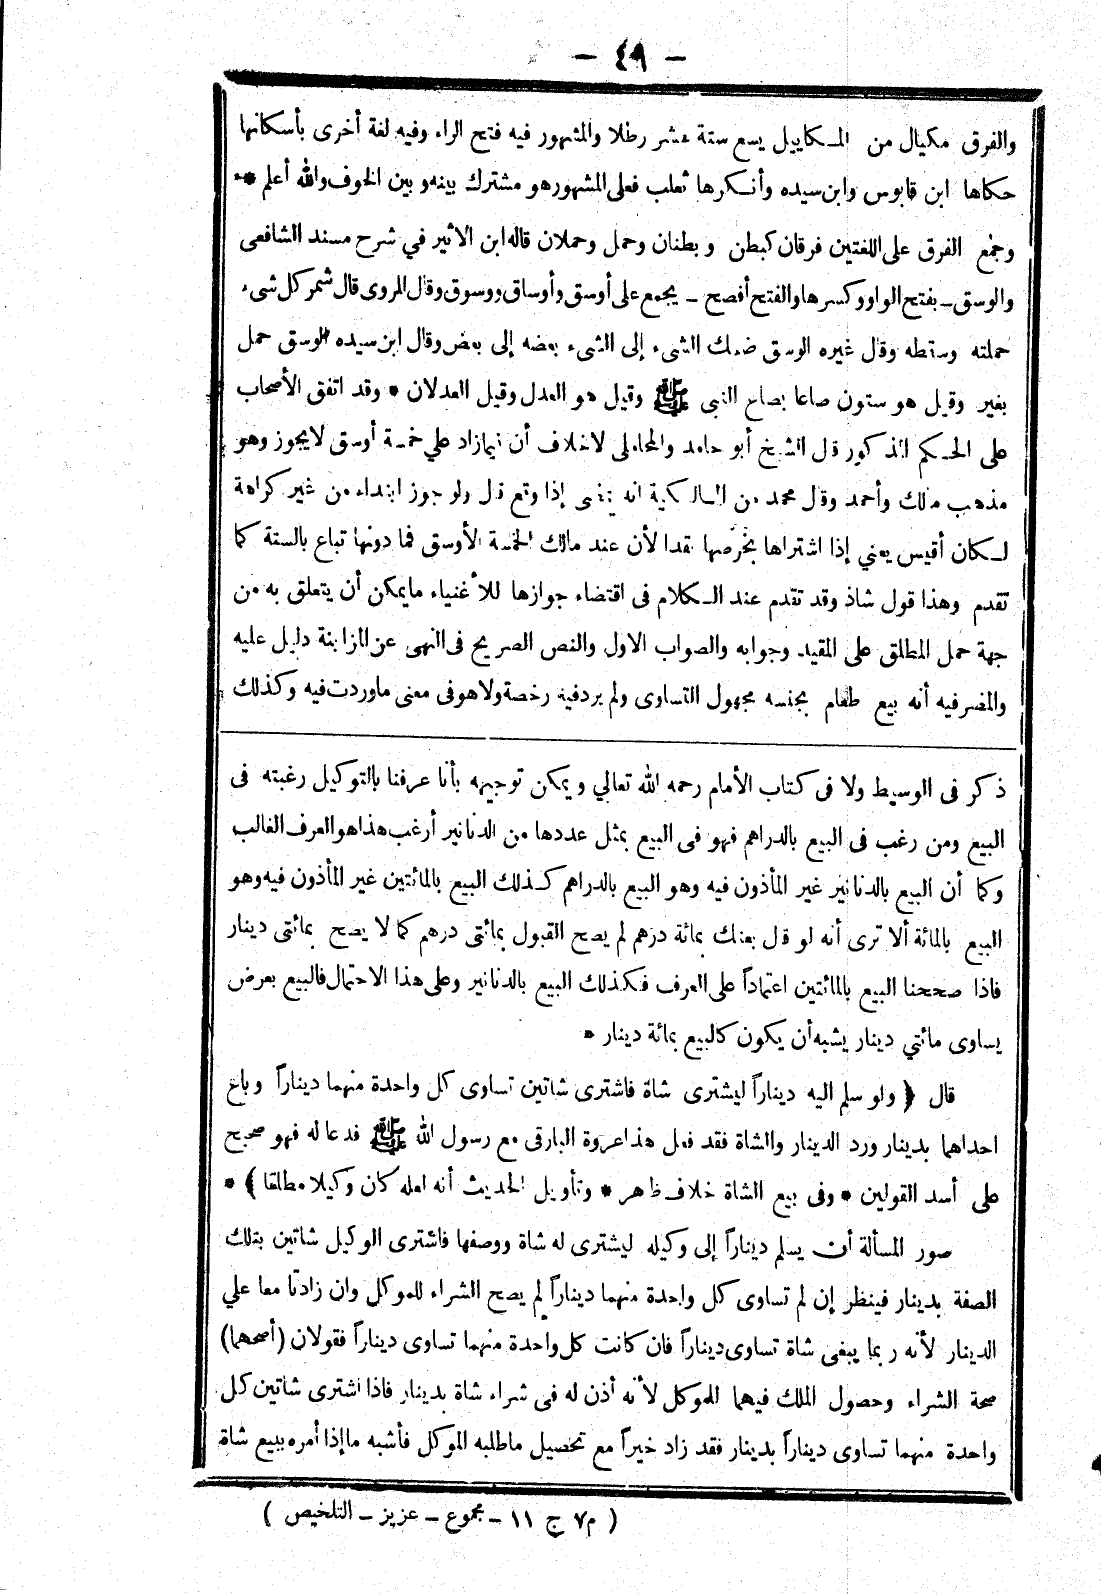 – ٤٩ –
والفرق مكيال من المـكاييل يسع ستة عشر رطلا والمشهور فيه فتح الراء وفيه لغة أخرى بأسكانها
حكاها ابن قابوس وابن سيده وأنـكرها ثعلب فعلى المشهور هو مشترك بينه وبين الخوف والله أعلم *
وجمع الفرق على اللغتين فرقان كبطن وبطنان وحمل وحملان قاله ابن الاثير في شرح مسند الشافعى
والوسق ـ بفتح الواو وكسرها والفتح أفصح ـ يجمع على أوسق وأوساق ووسوق وقال المروى قال شمر كل شىء
حملته وسقطه وقال غيره الوسق ضمك الشىء إلى الشىء بعضه إلى بعض وقال ابن سيده الوسق حمل
بغير وقيل هو ستون صاعا بصاع النبى ﷺ وقيل هو العدل وقيل العدلان * وقد اتفق الأصحاب
على الحـكم المذكور قال الشيخ أبو حامد والمحاملى لاخلاف أن فيمازاد علي خمسة أوسق لايجوز وهو
مذهب مالك وأحمد وقال محمد من المـالـكية انه يمضى إذا وقع قال ولو جوز ابتداء من غير كراهة
لـكان أقيس يعني إذا اشتراها بخرصها نقدا لأن عند مالك الخمسة الأوسق فما دونها تباع بالستة كما
تقدم وهذا قول شاذ وقد تقدم عند الـكلام فى اقتضاء جوازها للأغنياء مايمكن أن يتعلق به من
جهة حمل المطلق على المقيد وجوابه والصواب الاول والنص الصريح فى النهى عن المزابنة دليل عليه
والمضرفيه أنه بيع طعام بجنسه مجهول التساوى ولم يردفيه رخصة ولاهو فى معنى ماوردت فيه وكذلك
ذكر فى الوسيط ولا فى كتاب الأمام رحمه الله تعالي ويمكن توجيهه بأنا عرفنا بالتوكيل رغبته فى
البيع ومن رغب فى البيع بالدراهم فهو فى البيع بمثل عددها من الدنانير أرغب هذا هو العرف الغالب
وكما أن البيع بالدنانير غير المأذون فيه وهو البيع بالدراهم كـذلك البيع بالمائتين غير المأذون فيه وهو
البيع بالمائة ألا ترى أنه لو قال بعتك بمائة درهم لم يصح القبول بمائتى درهم كما لا يصح بمائتى دينار
فاذا صححنا البيع بالمائتين اعتماداً على العرف فـكذلك البيع بالدنانير وعلى هذا الاحتمال فالبيع بعرض
يساوى مائتي دينار يشبه أن يكون كالبيع بمائة دينار *
قال ﴿ ولو سلم اليه ديناراً ليشترى شاة فاشترى شاتين تساوى كل واحدة منهما ديناراً وباع
احداهما بدينار ورد الدينار والشاة فقد فعل هذا عروة البارقى مع رسول الله ﷺ فدعا له فهو صحيح
على أسد القولين * وفى بيع الشاة خلاف ظاهر * وتأويل الحديث أنه لعله كان وكيلا مطلقا ﴾ *
صور المسألة أن يسلم ديناراً إلى وكيله ليشترى له شاة ووصفها فاشترى الوكيل شاتين بتلك
الصفة بدينار فينظر إن لم تساوى كل واحدة منهما ديناراً لم يصح الشراء للموكل وان زادتا معا علي
الدينار لأنه ربما يبغى شاة تساوى ديناراً فان كانت كل واحدة منهما تساوى ديناراً فقولان (أصحهما)
صحة الشراء وحصول الملك فيهما للموكل لأنه أذن له فى شراء شاة بدينار فاذا اشترى شاتين كل
واحدة منهما تساوى ديناراً بدينار فقد زاد خيراً مع تحصيل ماطلبه الموكل فأشبه ماإذا أمره ببيع شاة
( م٧ ج ١١ – مجموع – عزيز – التلخيص )